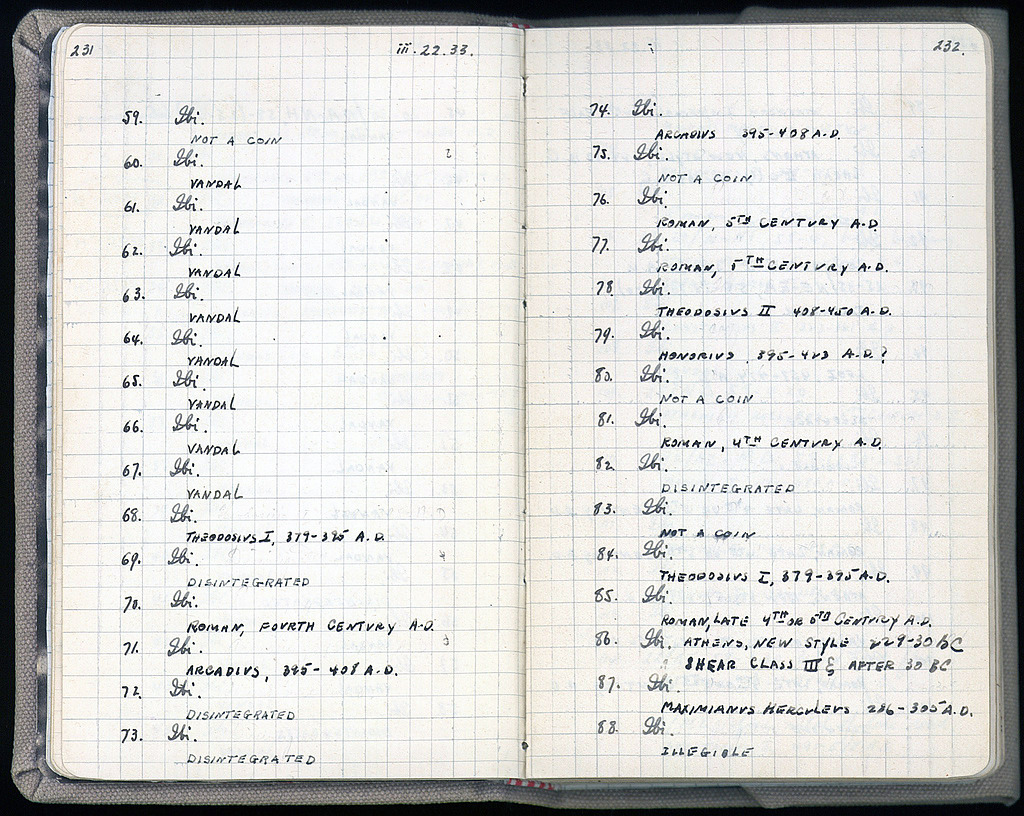 231
iii.22.33.
59. Ibi.
NOT A COIN
60. Ibi.
VANDAL
61. Ibi.
VANDAL
62. Ibi.
VANDAL
63. Ibi.
VANDAL
64. Ibi.
VANDAL
65. Ibi.
VANDAL
66. Ibi.
VANDAL
67. Ibi.
VANDAL
68. Ibi.
THEODOSIUS I, 379-395 A.D.
69. Ibi.
DISINTEGRATED
70. Ibi.
ROMAN, FOURTH CENTURY A.D.
71. Ibi.
ARCADIUS, 395-408 A.D.
72. Ibi.
DISINTEGRATED
73. Ibi.
DISINTEGRATED
232.
74. Ibi.
ARCADIUS 395-408 A.D.
75. Ibi.
NOT A COIN
76. Ibi.
ROMAN, 5TH CENTURY A.D.
77. Ibi.
ROMAN, 5TH CENTURY A.D.
78. Ibi.
THEODOSIUS II 408-450 A.D.
79. Ibi.
HONORIUS 395-423 A.D.?
80. Ibi.
NOT A COIN
81. Ibi.
ROMAN, 4TH CENTURY A.D.
82. Ibi.
DISINTEGRATED
83. Ibi.
NOT A COIN
84. Ibi.
THEODOSIUS I, 379-395 A.D.
85. Ibi.
ROMAN, LATE 4TH OR 5TH CENTURY A.D.
86. Ibi. ATHENS, NEW STYLE 229-30 BC
SHEAR CLASS III ξ AFTER 30 BC
87. Ibi.
MAXIMIANUS HERCULEUS 286-305 A.D.
88. Ibi.
ILLEGIBLE